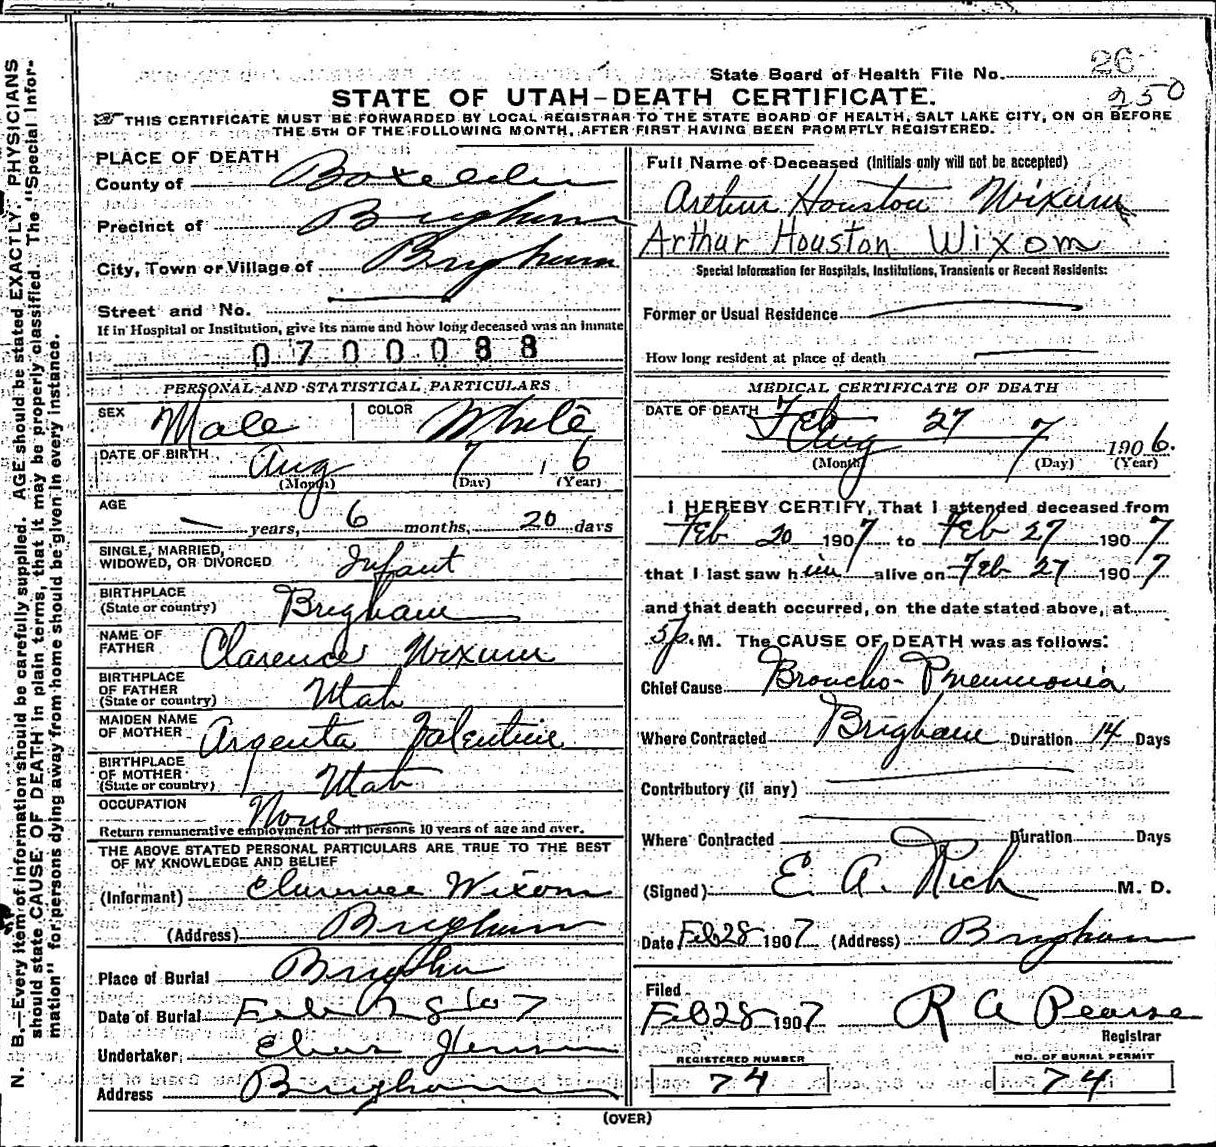 State Board of Health File No. 26
250
STATE OF UTAH-DEATH CERTIFICATE.
THIS CERTIFICATE MUST BE FORWARDED BY LOCAL REGISTRAR TO THE STATE BOARD OF HEALTH, SALT LAKE CITY, ON OR BEFORE
THE 5TH OF THE FOLLOWING MONTH, AFTER FIRST HAVING BEEN PROMPTLY REGISTERED.
N. B.—Every item of information should be carefully supplied. AGE should be stated EXACTLY. PHYSICIANS
should state CAUSE OF DEATH in plain terms, that it may be properly classified. The "Special Infor-
mation" for persons dying away from home should be given in every instance.
PLACE OF DEATH
County of Boxelder
Precinct of Brigham
City, Town or Village of Brigham
Street and No.
If in Hospital or Institution, give its name and how long deceased was an inmate
0700088
PERSONAL AND STATISTICAL PARTICULARS
SEX Male COLOR White
DATE OF BIRTH Aug 7, 1 6
(Month) (Day) (Year)
AGE
years, 6 months, 20 days
SINGLE, MARRIED,
WIDOWED, OR DIVORCED Infant
BIRTHPLACE
(State or country) Brigham
NAME OF
FATHER Clarence Wixum
BIRTHPLACE
OF FATHER
(State or country) Utah
MAIDEN NAME
OF MOTHER Argenta Valentine
BIRTHPLACE
OF MOTHER
(State or country) Utah
OCCUPATION None
Return remunerative employment for all persons 10 years of age and over.
THE ABOVE STATED PERSONAL PARTICULARS ARE TRUE TO THE BEST
OF MY KNOWLEDGE AND BELIEF
(Informant) Clarence Wixom
(Address) Brigham
Place of Burial Brigham
Date of Burial Feb 28 '07
Undertaker, Elias Jensen
Address Brigham
Full Name of Deceased (Initials only will not be accepted)
Arthur Houston Wixum
Arthur Houston Wixom
Special Information for Hospitals, Institutions, Transients or Recent Residents:
Former or Usual Residence
How long resident at place of death
MEDICAL CERTIFICATE OF DEATH
DATE OF DEATH Feb 27 7
Aug 7 1906.
(Month) (Day) (Year)
I HEREBY CERTIFY, That I attended deceased from
Feb 20 1907 to Feb 27 1907
that I last saw him alive on Feb 27 1907
and that death occurred, on the date stated above, at
5 p. M. The CAUSE OF DEATH was as follows:
Chief Cause Broncho-Pneumonia
Where Contracted Brigham Duration 14 Days
Contributory (if any)
Where Contracted Duration Days
(Signed) E. A. Rich M. D.
Date Feb 28 1907 (Address) Brigham
Filed
Feb 28 1907 R A Pearse
Registrar
REGISTERED NUMBER
74
NO. OF BURIAL PERMIT
74
(OVER)